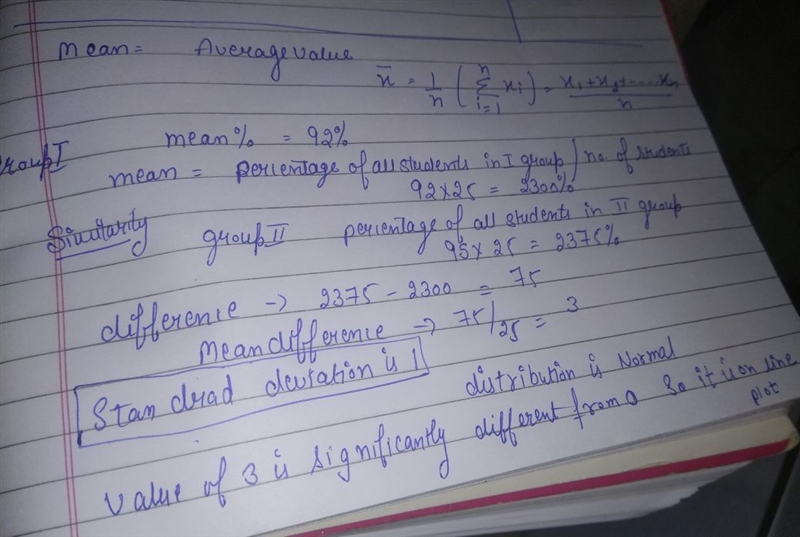 Mean = Average value
x̄ = 1/n ( Σ i=1 n xi ) = x1 + x2 + ---- xn / n
Group I mean% = 92%
mean = percentage of all students in I group / no. of students
92 x 25 = 2300%
Similarity group II percentage of all students in II group
95 x 25 = 2375%
difference → 2375 - 2300 = 75
Mean difference → 75/25 = 3
Standrad deviation is 1
distribution is Normal
Value of 3 is significantly different from 0 So it is on line
plot